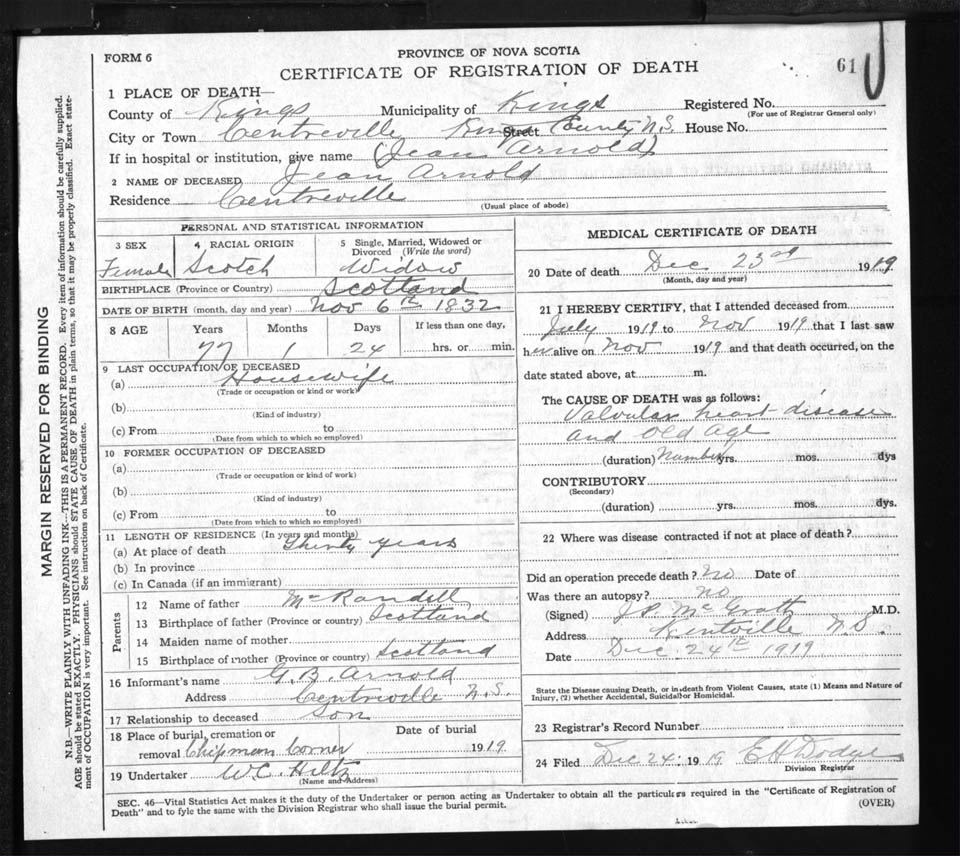 FORM 6
PROVINCE OF NOVA SCOTIA
CERTIFICATE OF REGISTRATION OF DEATH
61
1 PLACE OF DEATH—
County of Kings Municipality of Kings Registered No.
(For use of Registrar General only)
City or Town Centreville Kings Street County N.S. House No.
If in hospital or institution, give name (Jean Arnold)
2 NAME OF DECEASED Jean Arnold
Residence Centreville
(Usual place of abode)
PERSONAL AND STATISTICAL INFORMATION
3 SEX
Female
4 RACIAL ORIGIN
Scotch
5 Single, Married, Widowed or
Divorced (Write the word)
Widow
BIRTHPLACE (Province or Country) Scotland
DATE OF BIRTH (month, day and year) Nov 6th 1832
8 AGE Years Months Days If less than one day,
77 1 24 hrs. or min.
9 LAST OCCUPATION OF DECEASED
(a) Housewife
(Trade or occupation or kind or work)
(b)
(Kind of industry)
(c) From to
(Date from which to which so employed)
10 FORMER OCCUPATION OF DECEASED
(a)
(Trade or occupation or kind of work)
(b)
(Kind of industry)
(c) From to
(Date from which to which so employed)
11 LENGTH OF RESIDENCE (In years and months)
(a) At place of death Thirty years
(b) In province
(c) In Canada (if an immigrant)
Parents
12 Name of father McRandell
13 Birthplace of father (Province or country) Scotland
14 Maiden name of mother
15 Birthplace of mother (Province or country) Scotland
16 Informant's name G.B. Arnold
Address Centreville N.S.
17 Relationship to deceased Son
18 Place of burial, cremation or Date of burial
removal Chipman Corner 1919
19 Undertaker W.C. Hiltz
(Name and Address)
MEDICAL CERTIFICATE OF DEATH
20 Date of death Dec 23rd 1919
(Month, day and year)
21 I HEREBY CERTIFY, that I attended deceased from
July 1919 to Nov 1919 that I last saw
her alive on Nov 1919 and that death occurred, on the
date stated above, at m.
The CAUSE OF DEATH was as follows:
Valvular heart disease
and Old Age
(duration) Number yrs. mos. dys
CONTRIBUTORY
(Secondary)
(duration) yrs. mos. dys.
22 Where was disease contracted if not at place of death?
Did an operation precede death? No Date of
Was there an autopsy? No
(Signed) J.P. McGrath M.D.
Address Kentville N.S.
Date Dec. 24th 1919
State the Disease causing Death, or in death from Violent Causes, state (1) Means and Nature of
Injury, (2) whether Accidental, Suicidal or Homicidal.
23 Registrar's Record Number
24 Filed Dec 24: 1919 E H Dodge
Division Registrar
SEC. 46—Vital Statistics Act makes it the duty of the Undertaker or person acting as Undertaker to obtain all the particulars required in the "Certificate of Registration of
Death" and to fyle the same with the Division Registrar who shall issue the burial permit.
(OVER)
MARGIN RESERVED FOR BINDING
N.B.—WRITE PLAINLY WITH UNFADING INK—THIS IS A PERMANENT RECORD. Every item of information should be carefully supplied.
AGE should be stated EXACTLY. PHYSICIANS should STATE CAUSE OF DEATH in plain terms, so that it may be properly classified. Exact state-
ment of OCCUPATION is very important. See instructions on back of Certificate.